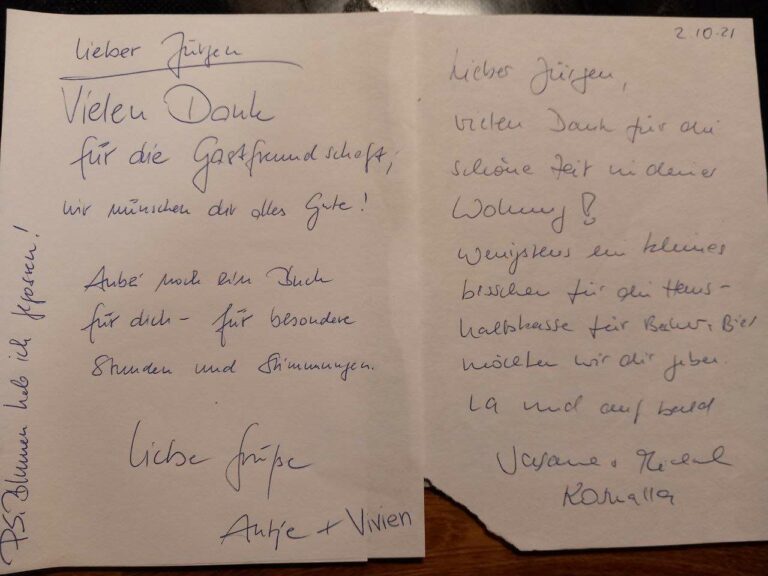 Lieber Jürgen
Vielen Dank
für die Gastfreundschaft,
wir wünschen dir alles Gute!
Anbei noch ein Buch
für dich - für besondere
Stunden und Stimmungen.
Liebe Grüße
Antje + Vivien
PS: Blumen hab ich gegossen!
2.10.21
Lieber Jürgen,
vielen Dank für die
schöne Zeit in deiner
Wohnung!
Wenigstens ein kleines
bisschen für die Haus-
haltskasse für Bier
möchten wir dir geben.
LG und auf bald